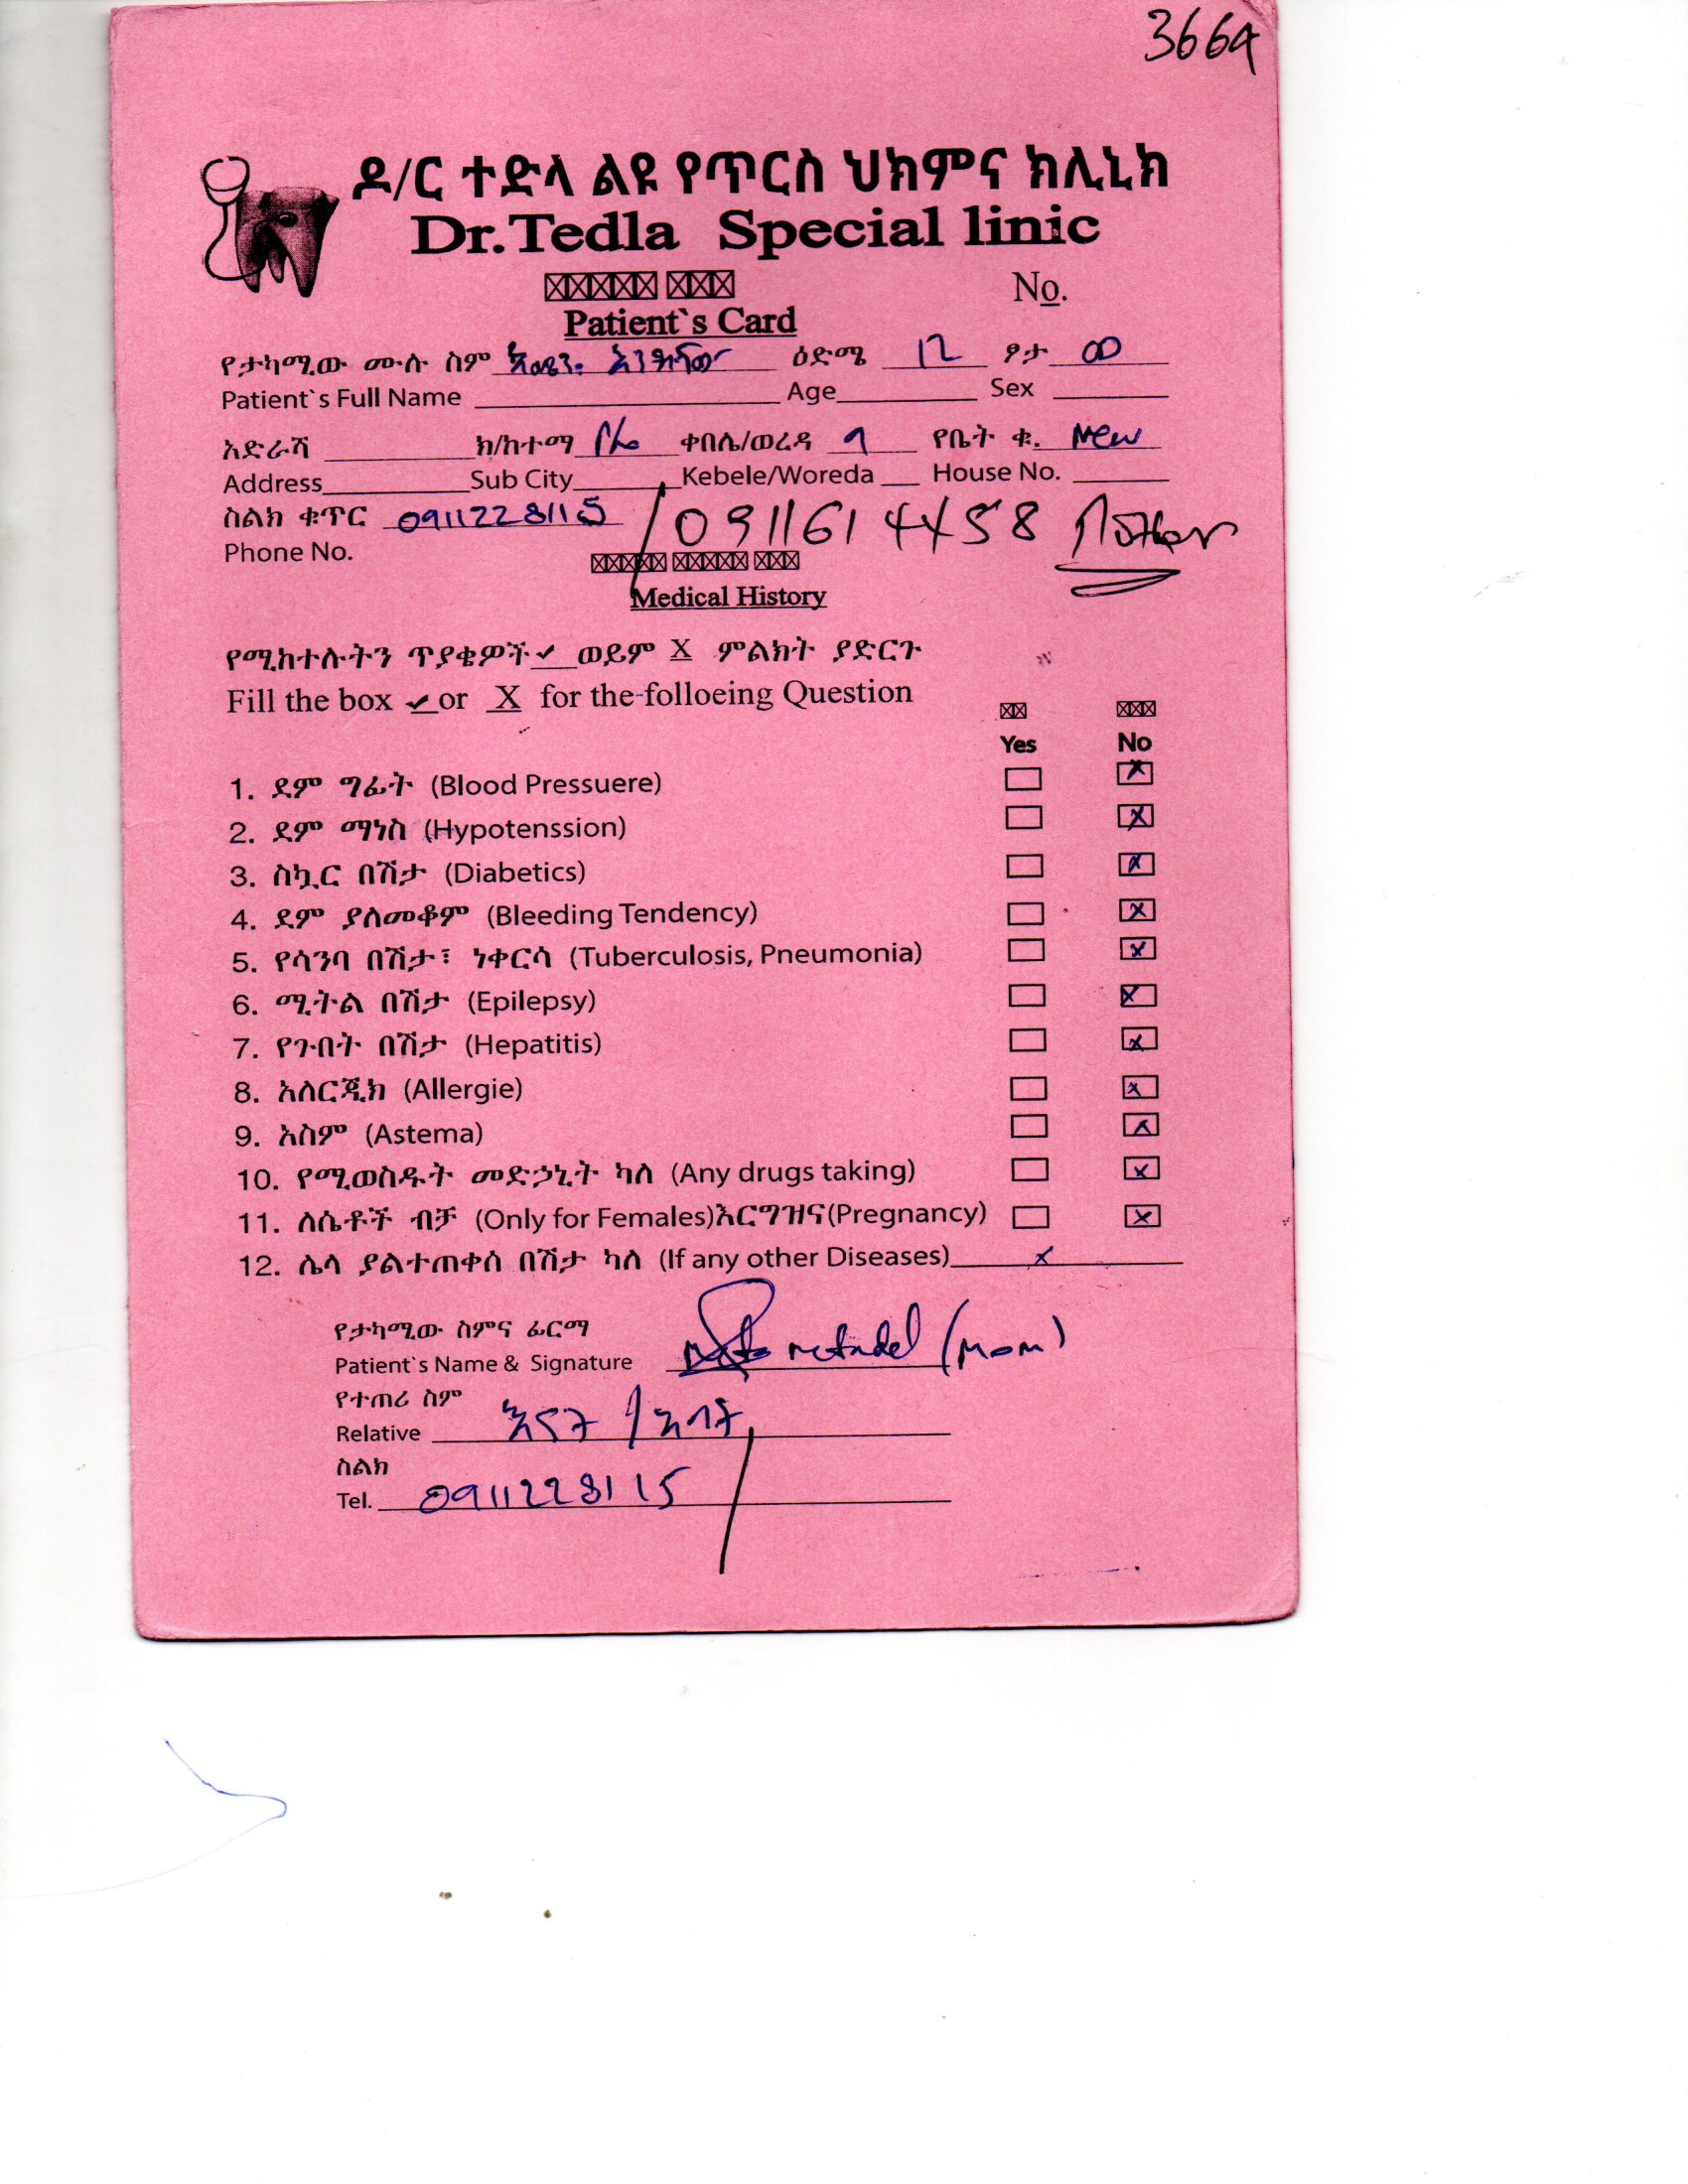 3664
ዶ/ር ተድላ ልዩ የጥርስ ህክምና ክሊኒክ
Dr.Tedla Special linic
No.
Patient`s Card
የታካሚው ሙሉ ስም ዕድሜ 12 ፆታ
Patient`s Full Name Age Sex
አድራሻ ክ/ከተማ ቀበሌ/ወረዳ 9 የቤት ቁ. New
Address Sub City Kebele/Woreda House No.
ስልክ ቁጥር 0911228115 / 0911614458 Mother
Phone No.
Medical History
የሚከተሉትን ጥያቄዎች ✓ ወይም X ምልክት ያድርጉ
Fill the box ✓ or X for the-folloeing Question
Yes No
1. ደም ግፊት (Blood Pressuere) X
2. ደም ማነስ (Hypotenssion) X
3. ስኳር በሽታ (Diabetics) X
4. ደም ያለመቆም (Bleeding Tendency) X
5. የሳንባ በሽታ፣ ነቀርሳ (Tuberculosis, Pneumonia) X
6. ሚትል በሽታ (Epilepsy) X
7. የጉበት በሽታ (Hepatitis) X
8. አለርጂክ (Allergie) X
9. አስም (Astema) X
10. የሚወስዱት መድኃኒት ካለ (Any drugs taking) X
11. ለሴቶች ብቻ (Only for Females)እርግዝና(Pregnancy) X
12. ሌላ ያልተጠቀሰ በሽታ ካለ (If any other Diseases) X
የታካሚው ስምና ፊርማ
Patient`s Name & Signature (Mom)
የተጠሪ ስም
Relative እናት / አባት
ስልክ
Tel. 0911228115